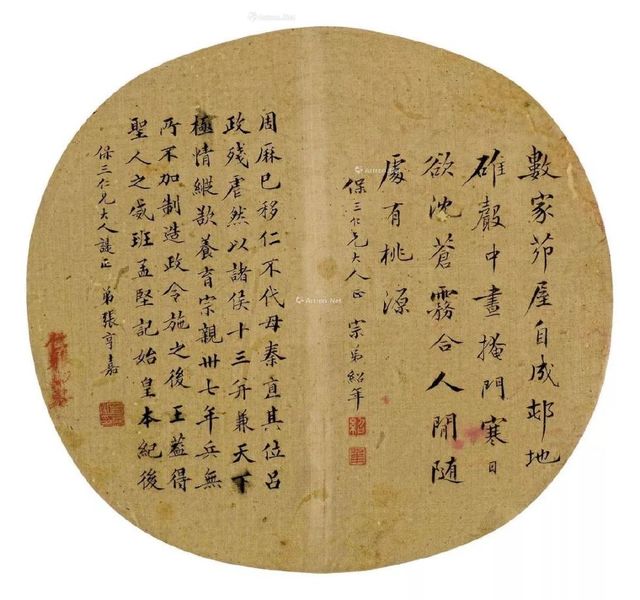 數家茆屋自成邨地
碓聲中晝掩門寒日
欲沈蒼霧合人閒隨
處有桃源
保三仁兄大人正 宗弟紹年
周厤已移仁不代母秦直其位呂
政殘虐然以諸侯十三并兼天下
極情縱欲養育宗親卅七年兵無
所不加制造政令施之後王蓋得
聖人之威班孟堅記始皇本紀後
保三仁兄大人諟正 弟張亨嘉
Artron.Net